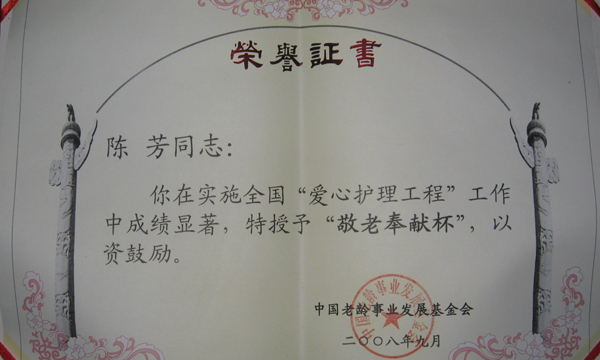 榮譽証書
陈 芳同志：
你在实施全国“爱心护理工程”工作
中成绩显著，特授予“敬老奉献杯”，以
资鼓励。
中国老龄事业发展基金会
二〇〇八年九月
中国老龄事业发展基金会